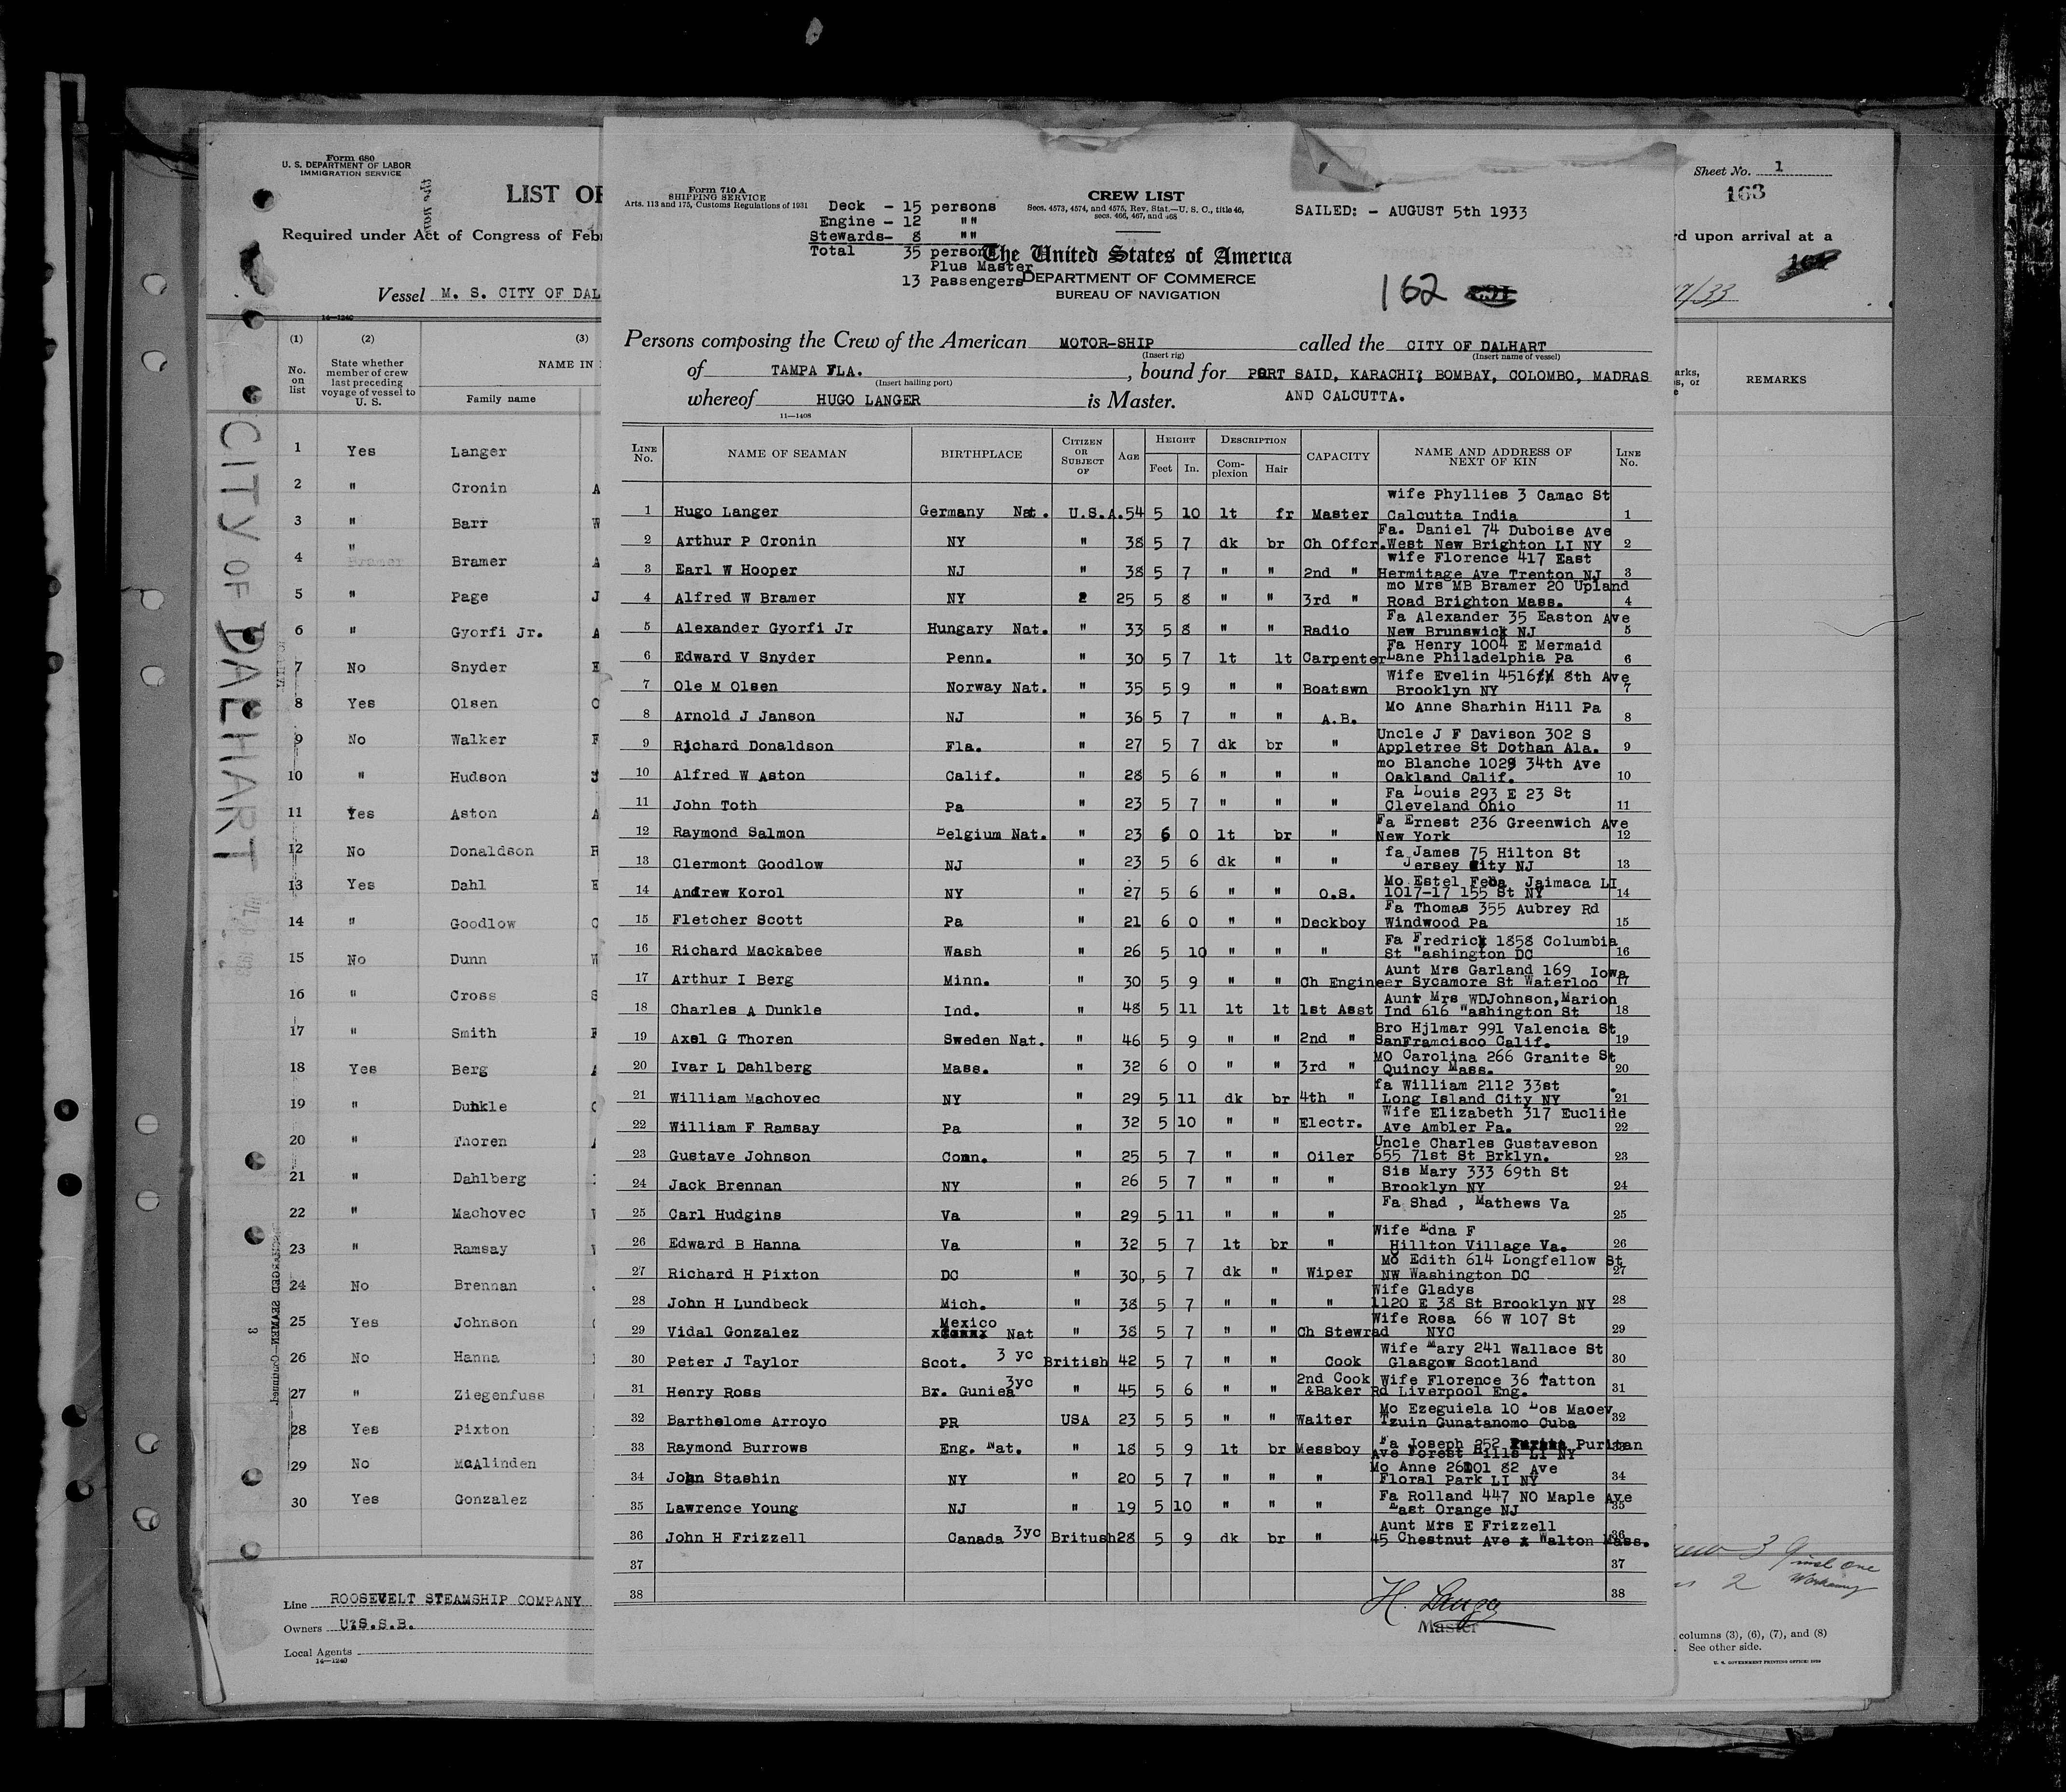 Form 680
U. S. DEPARTMENT OF LABOR
IMMIGRATION SERVICE
LIST OF
Required under Act of Congress of Feb
Vessel M. S. CITY OF DAL
14—1240
(1) (2) (3)
No. on list State whether member of crew last preceding voyage of vessel to U. S. NAME IN
Family name
1 Yes Langer
2 " Cronin A
3 " Barr W
4 " Bramer A
5 " Page J
6 " Gyorfi Jr. A
7 No Snyder E
8 Yes Olsen O
9 No Walker F
10 " Hudson J
11 Yes Aston A
12 No Donaldson R
13 Yes Dahl E
14 " Goodlow C
15 No Dunn W
16 " Cross S
17 " Smith
18 Yes Berg
19 " Dunkle
20 " Thoren
21 " Dahlberg
22 " Machovec
23 " Ramsay
24 No Brennan
25 Yes Johnson
26 No Hanna
27 " Ziegenfuss
28 Yes Pixton
29 No McAlinden
30 Yes Gonzalez
Line ROOSEVELT STEAMSHIP COMPANY
Owners U.S.S.B.
Local Agents
14—1240
CITY OF DALHART
Form 710 A
SHIPPING SERVICE
Arts. 113 and 175, Customs Regulations of 1931
Deck - 15 persons
Engine - 12 ""
Stewards- 8 ""
Total 35 person
Plus Master
13 Passengers
CREW LIST
Secs. 4573, 4574, and 4575, Rev. Stat.—U. S. C., title 46, secs. 466, 467, and 468
The United States of America
DEPARTMENT OF COMMERCE
BUREAU OF NAVIGATION
SAILED: - AUGUST 5th 1933
162
Persons composing the Crew of the American MOTOR-SHIP called the CITY OF DALHART
(Insert rig) (Insert name of vessel)
of TAMPA FLA. , bound for PORT SAID, KARACHI, BOMBAY, COLOMBO, MADRAS
(Insert hailing port)
whereof HUGO LANGER is Master. AND CALCUTTA.
11—1408
LINE No. NAME OF SEAMAN BIRTHPLACE CITIZEN OR SUBJECT OF AGE HEIGHT Feet In. DESCRIPTION Complexion Hair CAPACITY NAME AND ADDRESS OF NEXT OF KIN LINE No.
1 Hugo Langer Germany Nat. U.S.A. 54 5 10 lt fr Master wife Phyllies 3 Camac St Calcutta India 1
2 Arthur P Cronin NY " 38 5 7 dk br Ch Offcr. Fa. Daniel 74 Duboise Ave West New Brighton LI NY 2
3 Earl W Hooper NJ " 38 5 7 " " 2nd " wife Florence 417 East Hermitage Ave Trenton NJ 3
4 Alfred W Bramer NY 2 25 5 8 " " 3rd " mo Mrs MB Bramer 20 Upland Road Brighton Mass. 4
5 Alexander Gyorfi Jr Hungary Nat. " 33 5 8 " " Radio Fa Alexander 35 Easton Ave New Brunswick NJ 5
6 Edward V Snyder Penn. " 30 5 7 lt lt Carpenter Fa Henry 1004 E Mermaid Lane Philadelphia Pa 6
7 Ole M Olsen Norway Nat. " 35 5 9 " " Boatswn Wife Evelin 4516 8th Ave Brooklyn NY 7
8 Arnold J Janson NJ " 36 5 7 " " A.B. Mo Anne Sharhin Hill Pa 8
9 Richard Donaldson Fla. " 27 5 7 dk br " Uncle J F Davison 302 S Appletree St Dothan Ala. 9
10 Alfred W Aston Calif. " 28 5 6 " " " mo Blanche 1029 34th Ave Oakland Calif. 10
11 John Toth Pa " 23 5 7 " " " Fa Louis 293 E 23 St Cleveland Ohio 11
12 Raymond Salmon Belgium Nat. " 23 6 0 lt br " Fa Ernest 236 Greenwich Ave New York 12
13 Clermont Goodlow NJ " 23 5 6 dk " " fa James 75 Hilton St Jersey City NJ 13
14 Andrew Korol NY " 27 5 6 " " O.S. Mo Estel Jaimaca LI 1017-17 155 St NY 14
15 Fletcher Scott Pa " 21 6 0 " " Deckboy Fa Thomas 355 Aubrey Rd Windwood Pa 15
16 Richard Mackabee Wash " 26 5 10 " " " Fa Fredrick 1858 Columbia St "ashington DC 16
17 Arthur I Berg Minn. " 30 5 9 " " Ch Engineer Aunt Mrs Garland 169 Iowa Sycamore St Waterloo 17
18 Charles A Dunkle Ind. " 48 5 11 lt lt 1st Asst Aunt Mrs WDJohnson, Marion Ind 616 "ashington St 18
19 Axel G Thoren Sweden Nat. " 46 5 9 " " 2nd " Bro Hjlmar 991 Valencia St SanFramcisco Calif. 19
20 Ivar L Dahlberg Mass. " 32 6 0 " " 3rd " MO Carolina 266 Granite St Quincy Mass. 20
21 William Machovec NY " 29 5 11 dk br 4th " fa William 2112 33st Long Island City NY 21
22 William F Ramsay Pa " 32 5 10 " " Electr. Wife Elizabeth 317 Euclide Ave Ambler Pa. 22
23 Gustave Johnson Conn. " 25 5 7 " " Oiler Uncle Charles Gustaveson 655 71st St Brklyn. 23
24 Jack Brennan NY " 26 5 7 " " " Sis Mary 333 69th St Brooklyn NY 24
25 Carl Hudgins Va " 29 5 11 " " " Fa Shad , Mathews Va 25
26 Edward B Hanna Va " 32 5 7 lt br " Wife Edna F Hillton Village Va. 26
27 Richard H Pixton DC " 30 5 7 dk " Wiper Mo Edith 614 Longfellow St NW Washington DC 27
28 John H Lundbeck Mich. " 38 5 7 " " " Wife Gladys 1120 E 38 St Brooklyn NY 28
29 Vidal Gonzalez Mexico Nat " 38 5 7 " " Ch Stewrad Wife Rosa 66 W 107 St NYC 29
30 Peter J Taylor Scot. 3 yc British 42 5 7 " " Cook Wife Mary 241 Wallace St Glasgow Scotland 30
31 Henry Ross Br. Guniea 3yc " 45 5 6 " " 2nd Cook &Baker Wife Florence 36 Tatton Rd Liverpool Eng. 31
32 Barthelome Arroyo PR USA 23 5 5 " " Waiter Mo Ezeguiela 10 Los Maoev Tzuin Gunatanomo Cuba 32
33 Raymond Burrows Eng. Nat. " 18 5 9 lt br Messboy Fa Joseph 252 Puritan Ave Forest Hills LI NY 33
34 John Stashin NY " 20 5 7 " " " Mo Anne 26101 82 Ave Floral Park LI NY 34
35 Lawrence Young NJ " 19 5 10 " " " Fa Rolland 447 NO Maple Ave East Orange NJ 35
36 John H Frizzell Canada 3yc Britush 28 5 9 dk br " Aunt Mrs E Frizzell 45 Chestnut Ave Walton Mass. 36
37 37
38 38
H. Langer
Master
Sheet No. 1
163
rd upon arrival at a
7/33
REMARKS
columns (3), (6), (7), and (8)
See other side.
U. S. GOVERNMENT PRINTING OFFICE: 1929